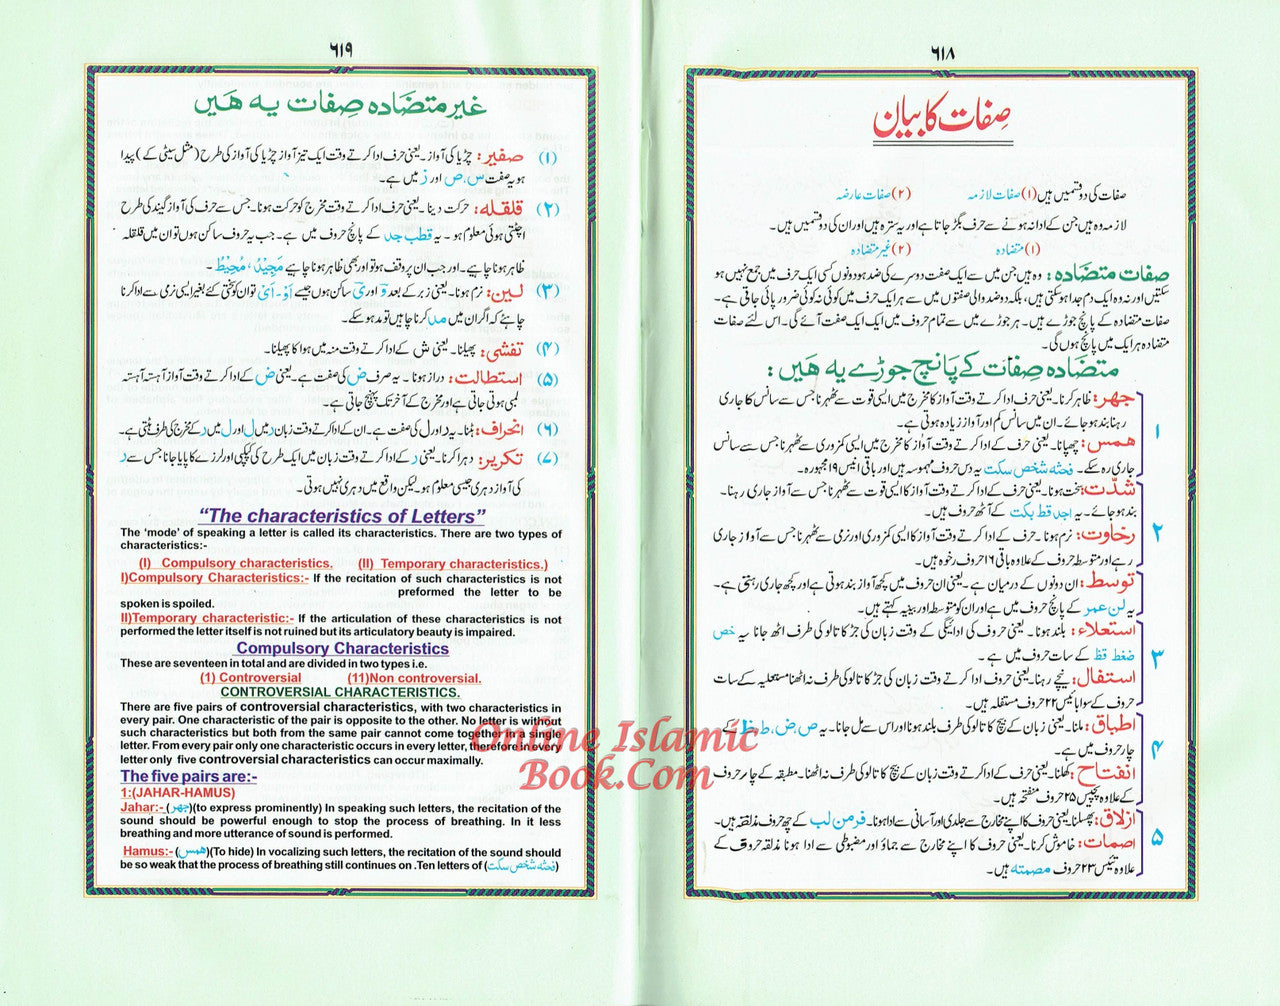 ۶۱۸
صِفات کا بیان
صفات کی دو قسمیں ہیں (۱) صفات لازمہ (۲) صفات عارضہ
لازمہ وہ ہیں جن کے ادا نہ ہونے سے حرف بگڑ جاتا ہے اور یہ سترہ ہیں اور ان کی دو قسمیں ہیں۔
(۱) متضادہ (۲) غیر متضادہ
صفات متضادہ: وہ ہیں جن میں سے ایک صفت دوسرے کی ضد ہو دونوں کسی ایک حرف میں جمع نہیں ہو
سکتیں اور نہ وہ ایک دم جدا ہو سکتی ہیں، بلکہ دو ضد والی صفتوں میں سے ہر ایک حرف میں کوئی نہ کوئی ضرور پائی جاتی ہے۔
صفات متضادہ کے پانچ جوڑے ہیں۔ ہر جوڑے میں سے تمام حروف میں ایک ایک صفت آئے گی۔ اس لئے صفات
متضادہ ہر ایک میں پانچ ہوں گی۔
متضادہ صِفات کے پانچ جوڑے یہ ہیں:
۱ جہر: ظاہر کرنا۔ یعنی حرف ادا کرتے وقت آواز کا مخرج میں ایسی قوت سے ٹھہرنا جس سے سانس کا جاری
رہنا بند ہو جائے۔ ان میں سانس کم اور آواز زیادہ ہوتی ہے۔
ہمس: چھپانا۔ یعنی حرف کے ادا کرتے وقت آواز کا مخرج میں ایسی کمزوری سے ٹھہرنا جس سے سانس
جاری رہ سکے۔ فحثہ شخص سکت یہ دس حروف مہموسہ ہیں اور باقی انیس ۱۹ مجہورہ۔
۲ شدّت: سخت ہونا۔ یعنی حرف کے ادا کرتے وقت آواز کا ایسی قوت سے ٹھہرنا جس سے آواز جاری رہنا۔
بند ہو جائے۔ یہ اجد قط بکت کے آٹھ حروف ہیں۔
رخاوت: نرم ہونا۔ حرف کے ادا کرتے وقت آواز کا ایسی کمزوری اور نرمی سے ٹھہرنا جس سے آواز جاری
رہے اور متوسط حروف کے علاوہ باقی ۱۶ حروف رخوہ ہیں۔
توسط: ان دونوں کے درمیان ہے۔ یعنی ان حروف میں کچھ آواز بند ہوتی ہے اور کچھ جاری رہتی ہے۔
یہ لن عمر کے پانچ حروف میں ہے اور ان کو متوسطہ اور بینیہ کہتے ہیں۔
۳ استعلاء: بلند ہونا۔ یعنی حروف کی ادائیگی کے وقت زبان کی جڑ کا تالو کی طرف اٹھ جانا یہ خص
ضغط قظ کے سات حروف میں ہے۔
استفال: نیچے رہنا۔ یعنی حروف کے ادا کرتے وقت زبان کی جڑ کا تالو کی طرف نہ اٹھنا مستعلیہ کے سات
حروف کے سوا بائیس ۲۲ حروف مستفلہ ہیں۔
۴ اطباق: ملنا۔ یعنی زبان کے بیچ کا تالو کی طرف بلند ہونا اور اس سے مل جانا۔ یہ ص، ض، ط، ظ کے
چار حروف میں ہے۔
انفتاح: کھلنا۔ یعنی حرف کے ادا کرتے وقت زبان کے بیچ کا تالو کی طرف نہ اٹھنا۔ مطبقہ کے چار حروف
کے علاوہ پچیس ۲۵ حروف منفتحہ ہیں۔
۵ ازلاق: پھسلنا۔ یعنی حروف کا اپنے مخارج سے جلدی اور آسانی سے ادا ہونا۔ فر من لب کے چھ حروف مذلقہ ہیں۔
اصمات: خاموش کرنا۔ یعنی حروف کا اپنے مخارج سے جماؤ اور مضبوطی سے ادا ہونا مذلقہ حروف کے
علاوہ تئیس ۲۳ حروف مصمتہ ہیں۔
۶۱۹
غیر متضادہ صِفات یہ ہیں
(۱) صفیر: چڑیا کی آواز۔ یعنی حرف ادا کرتے وقت ایک تیز آواز چڑیا کی آواز کی طرح (مثل سیٹی کے) پیدا
ہو یہ صفت س، ص اور ز میں ہے۔
(۲) قلقلہ: حرکت دینا۔ یعنی حرف ادا کرتے وقت مخرج کو حرکت ہونا۔ جس سے حرف کی آواز گیند کی طرح
اچٹتی ہوئی معلوم ہو۔ یہ قطب جد کے پانچ حروف میں ہے۔ جب یہ حروف ساکن ہوں تو ان میں قلقلہ
ظاہر ہونا چاہیے۔ اور جب ان پر وقف ہو تو اور بھی ظاہر ہونا چاہیے مَجِیْدٌ، مُحِیْطٌ۔
(۳) لین: نرم ہونا۔ یعنی زبر کے بعد و اور ی ساکن ہوں جیسے اَوْ۔ اَیْ تو ان کو سختی کئے بغیر ایسی نرمی سے ادا کرنا
چاہئے کہ اگر ان میں مد کرنا چاہیں تو مد ہو سکے۔
(۴) تفشی: پھیلنا۔ یعنی ش کے ادا کرتے وقت منہ میں ہوا کا پھیلنا۔
(۵) استطالت: دراز ہونا۔ یہ صرف ض کی صفت ہے۔ یعنی ض کے ادا کرتے وقت آواز آہستہ آہستہ
لمبی ہوتی جاتی ہے اور مخرج کے آخر تک پہنچ جاتی ہے۔
(۶) انحراف: ہٹنا۔ یہ ر اور ل کی صفت ہے۔ ان کے ادا کرتے وقت زبان ر میں ل اور ل میں ر کے مخرج کی طرف ہٹتی ہے۔
(۷) تکریر: دہرا کرنا۔ یعنی ر کے ادا کرتے وقت زبان میں ایک طرح کی کپکپی اور لرزے کا پایا جانا جس سے ر
کی آواز دہری جیسی معلوم ہو۔ لیکن واقع میں دہری نہیں ہوتی۔
“The characteristics of Letters”
The ‘mode’ of speaking a letter is called its characteristics. There are two types of
characteristics:-
(I) Compulsory characteristics. (II) Temporary characteristics.)
I)Compulsory Characteristics:- If the recitation of such characteristics is not
preformed the letter to be
spoken is spoiled.
II)Temporary characteristic:- If the articulation of these characteristics is not
performed the letter itself is not ruined but its articulatory beauty is impaired.
Compulsory Characteristics
These are seventeen in total and are divided in two types i.e.
(1) Controversial (11)Non controversial.
CONTROVERSIAL CHARACTERISTICS.
There are five pairs of controversial characteristics, with two characteristics in
every pair. One characteristic of the pair is opposite to the other. No letter is without
such characteristics but both from the same pair cannot come together in a single
letter. From every pair only one characteristic occurs in every letter, therefore in every
letter only five controversial characteristics can occur maximally.
The five pairs are:-
1:(JAHAR-HAMUS)
Jahar:- (جھر)(to express prominently) In speaking such letters, the recitation of the
sound should be powerful enough to stop the process of breathing. In it less
breathing and more utterance of sound is performed.
Hamus:- (همس)(To hide) In vocalizing such letters, the recitation of the sound should
be so weak that the process of breathing still continues on .Ten letters of (فحثه شخص سکت)
Online Islamic
Book.Com